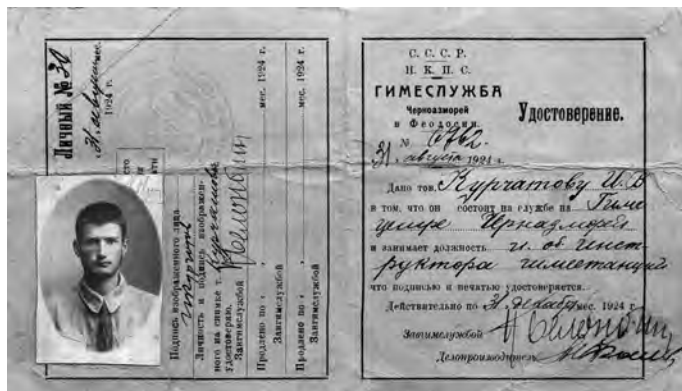 Личный № 30
31 августа мес.
1924 г.
Подпись изображенного лица
Личность и подпись изображен-
ного на снимке т. Курчатова
удостоверяю.
Завгимеслужбой
Продлено по « » мес. 1924 г.
Завгимеслужбой
Продлено по « » мес. 1924 г.
Завгимеслужбой
С. С. С. Р.
Н. К. П. С.
ГИМЕСЛУЖБА
Черноазморей
в Феодосии.
№ 6762.
31 августа 1924 г.
Удостоверение.
Дано тов. Курчатову И. В
в том, что он состоит на службе на Гиме
центре Чрназморей
и занимает должность и. об. инст
руктора гиместанций
что подписью и печатью удостоверяется.
Действительно по 31 декабря мес. 1924 г.
Завгимеслужбой
Делопроизводитель